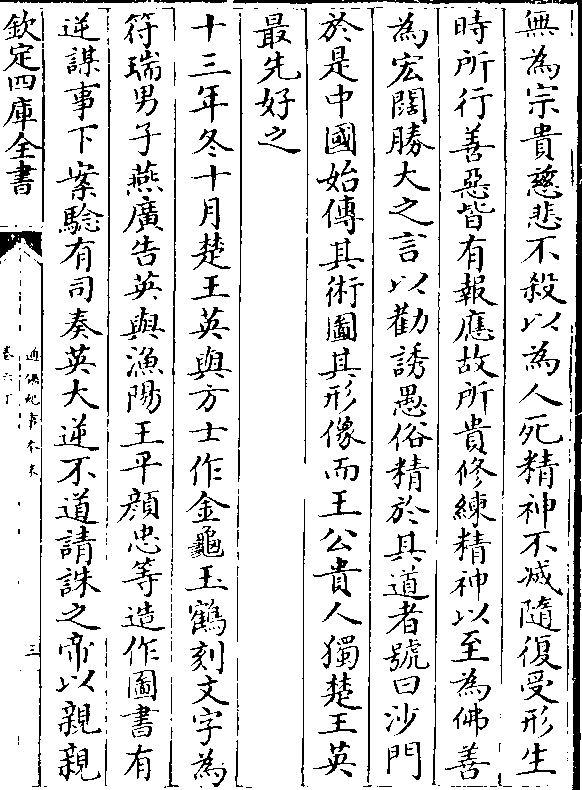 無為宗貴慈悲不殺以為人死精神不滅隨復受形生
時所行善惡皆有報應故所貴修練精神以至為佛善
為宏闊勝大之言以勸誘愚俗精於其道者號曰沙門
於是中國始傳其術圖其形像而王公貴人獨楚王英
最先好之
十三年冬十月楚王英與方士作金龜玉鶴刻文字為
符瑞男子燕廣告英與漁陽王平顔忠等造作圖書有
逆謀事下案驗有司奏英大逆不道請誅之帝以親親
欽定四庫全書
通鑑紀事本末
卷六下
三